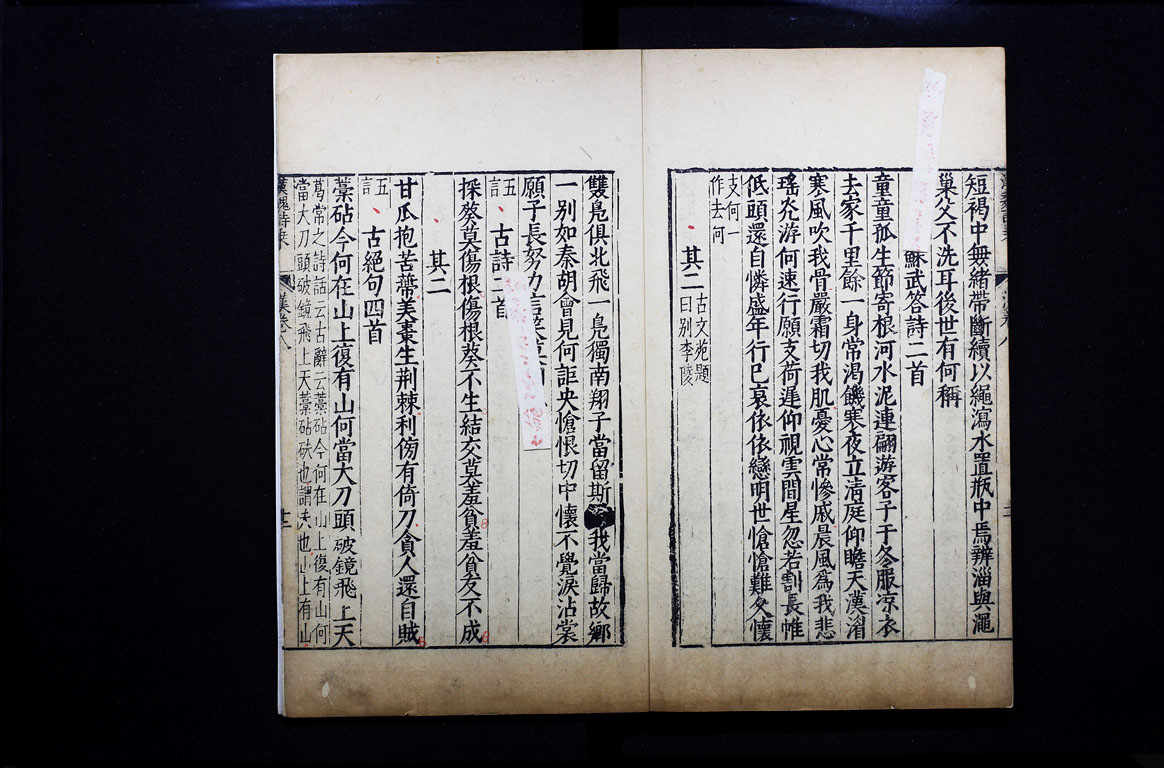 短褐中無緒帶斷續以繩瀉水置瓶中焉辨淄與澠
巢父不洗耳後世有何稱
蘇武答詩二首
童童孤生節寄根河水泥連翩游客子于冬服涼衣
去家千里餘一身常渴饑寒夜立清庭仰瞻天漢湄
寒風吹我骨嚴霜切我肌憂心常慘戚晨風為我悲
瑤光游何速行願支荷遲仰視雲間星忽若割長帷
低頭還自憐盛年行已哀依依戀明世愴愴難久懷
支何一
作去何
其二
古文苑題
曰別李陵
雙鳧俱北飛一鳧獨南翔子當留斯
我當歸故鄉
一別如秦胡會見何詎央愴恨切中懷不覺淚沾裳
願子長努力言笑莫
五
言
古詩二首
採葵莫傷根傷根葵不生結交莫羞貧羞貧友不成
其二
甘瓜抱苦蔕美棗生荆棘利傍有倚刀貪人還自賊
五
言
古絕句四首
藁砧今何在山上復有山何當大刀頭破鏡飛上天
葛常之詩話云古辭云藁砧今何在山上復有山何
當大刀頭破鏡飛上天藁砧砆也謂夫也山上有山
漢魏詩乘
漢卷八